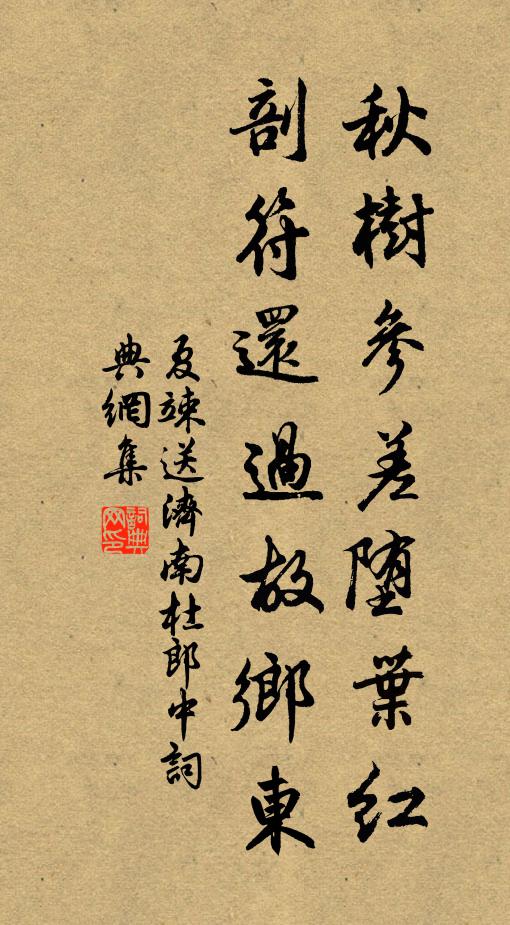 秋樹參差墮葉紅
剖符還過故鄉東
夏竦送濟南杜郎中詞
典網集
詞典
网印